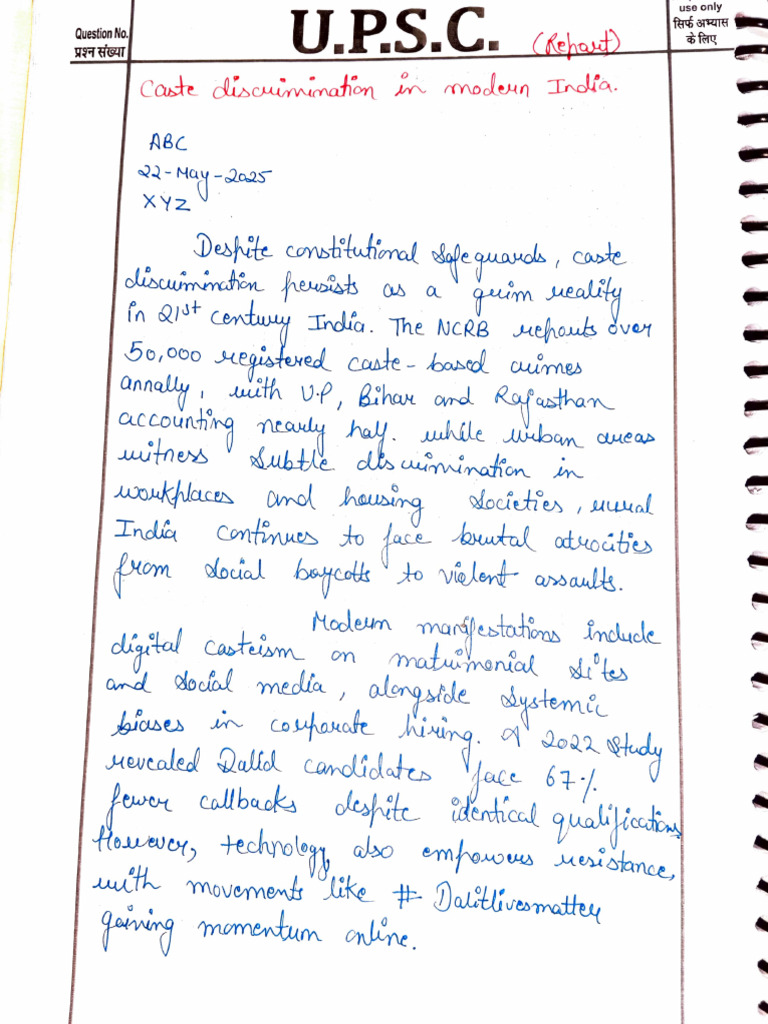 Question No.
प्रश्न संख्या
U.P.S.C.
(Report)
use only
सिर्फ अभ्यास
के लिए
Caste discrimination in modern India.
ABC
22-May-2025
XYZ
Despite constitutional safeguards, caste
discrimination persists as a grim reality
in 21st century India. The NCRB reports over
50,000 registered caste-based crimes
annally, with U.P, Bihar and Rajasthan
accounting nearly half. while urban areas
witness subtle discrimination in
workplaces and housing societies, rural
India continues to face brutal atrocities
from social boycotts to violent assaults.
Modern manifestations include
digital casteism on matrimonial sites
and social media, alongside systemic
biases in corporate hiring. A 2022 study
revealed Dalid candidates face 67%
fewer callbacks despite identical qualifications.
However, technology also empowers resistance,
with movements like # Dalitlivesmatter
gaining momentum online.